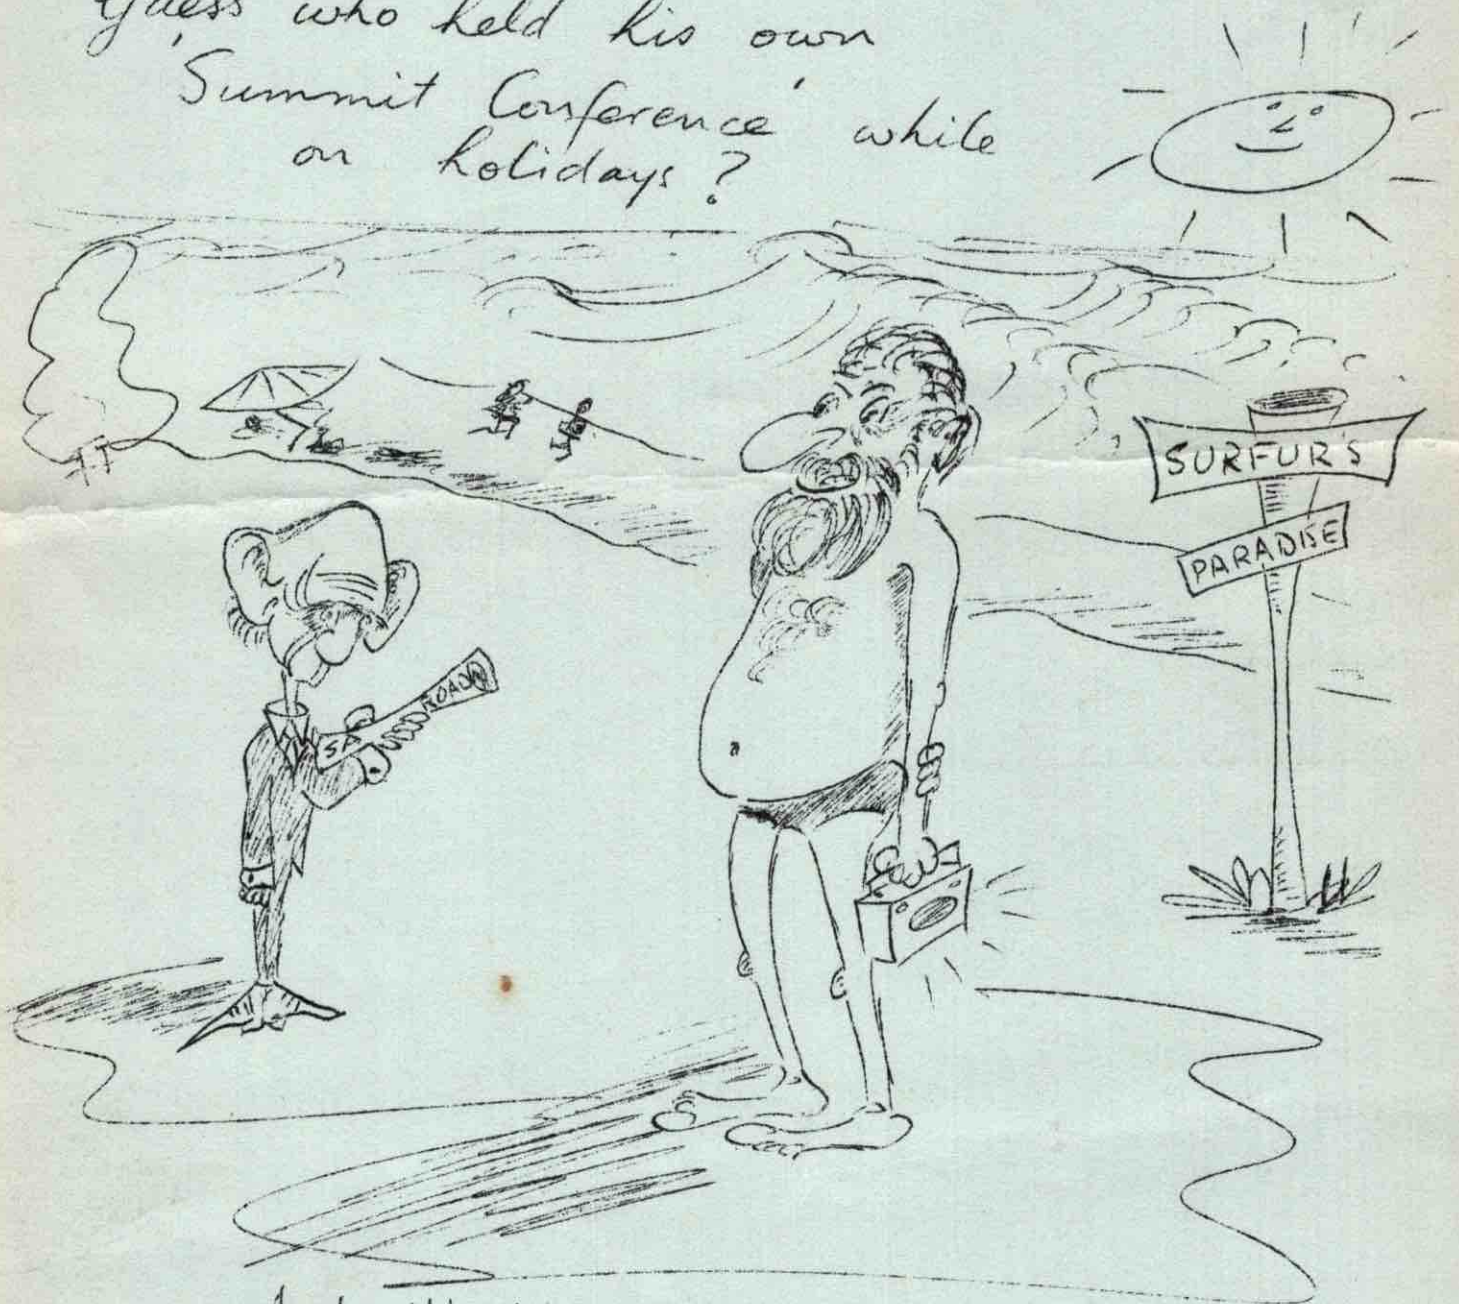 Guess who held his own
'Summit Conference' while
on holidays?
SURFUR'S
PARADISE
SA
ROAD